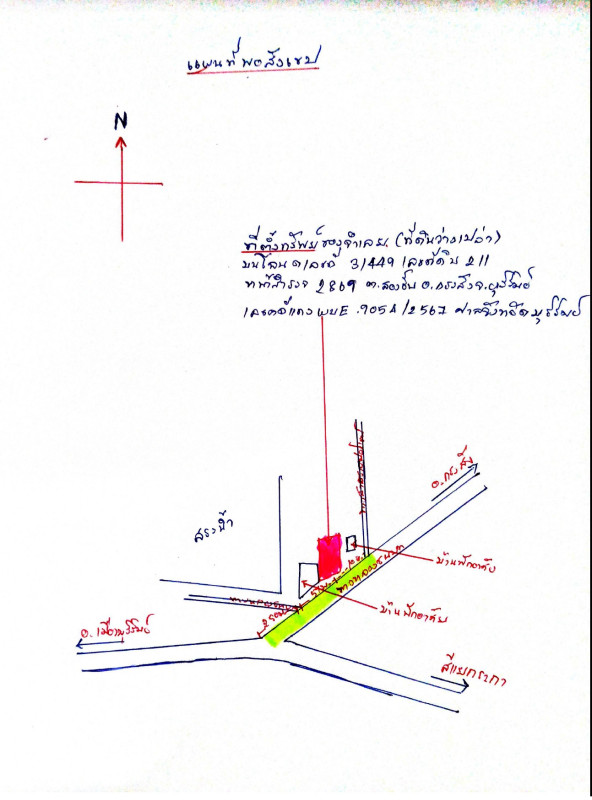 แผนที่พอสังเขป
N
ที่ตั้งทรัพย์ของจำเลย (ที่ดินว่างเปล่า)
บนโฉนดเลขที่ 31449 เลขที่ดิน 211
หน้าสำรวจ 2869 ต.สองชั้น อ.กระสัง จ.บุรีรัมย์
เลขคดีแดง ผบE.9054/2567 ศาลจังหวัดบุรีรัมย์
อ.กระสัง
สระน้ำ
บ้านพักอาศัย
บ้านพักอาศัย
อ.เมืองบุรีรัมย์
สี่แยกระกา